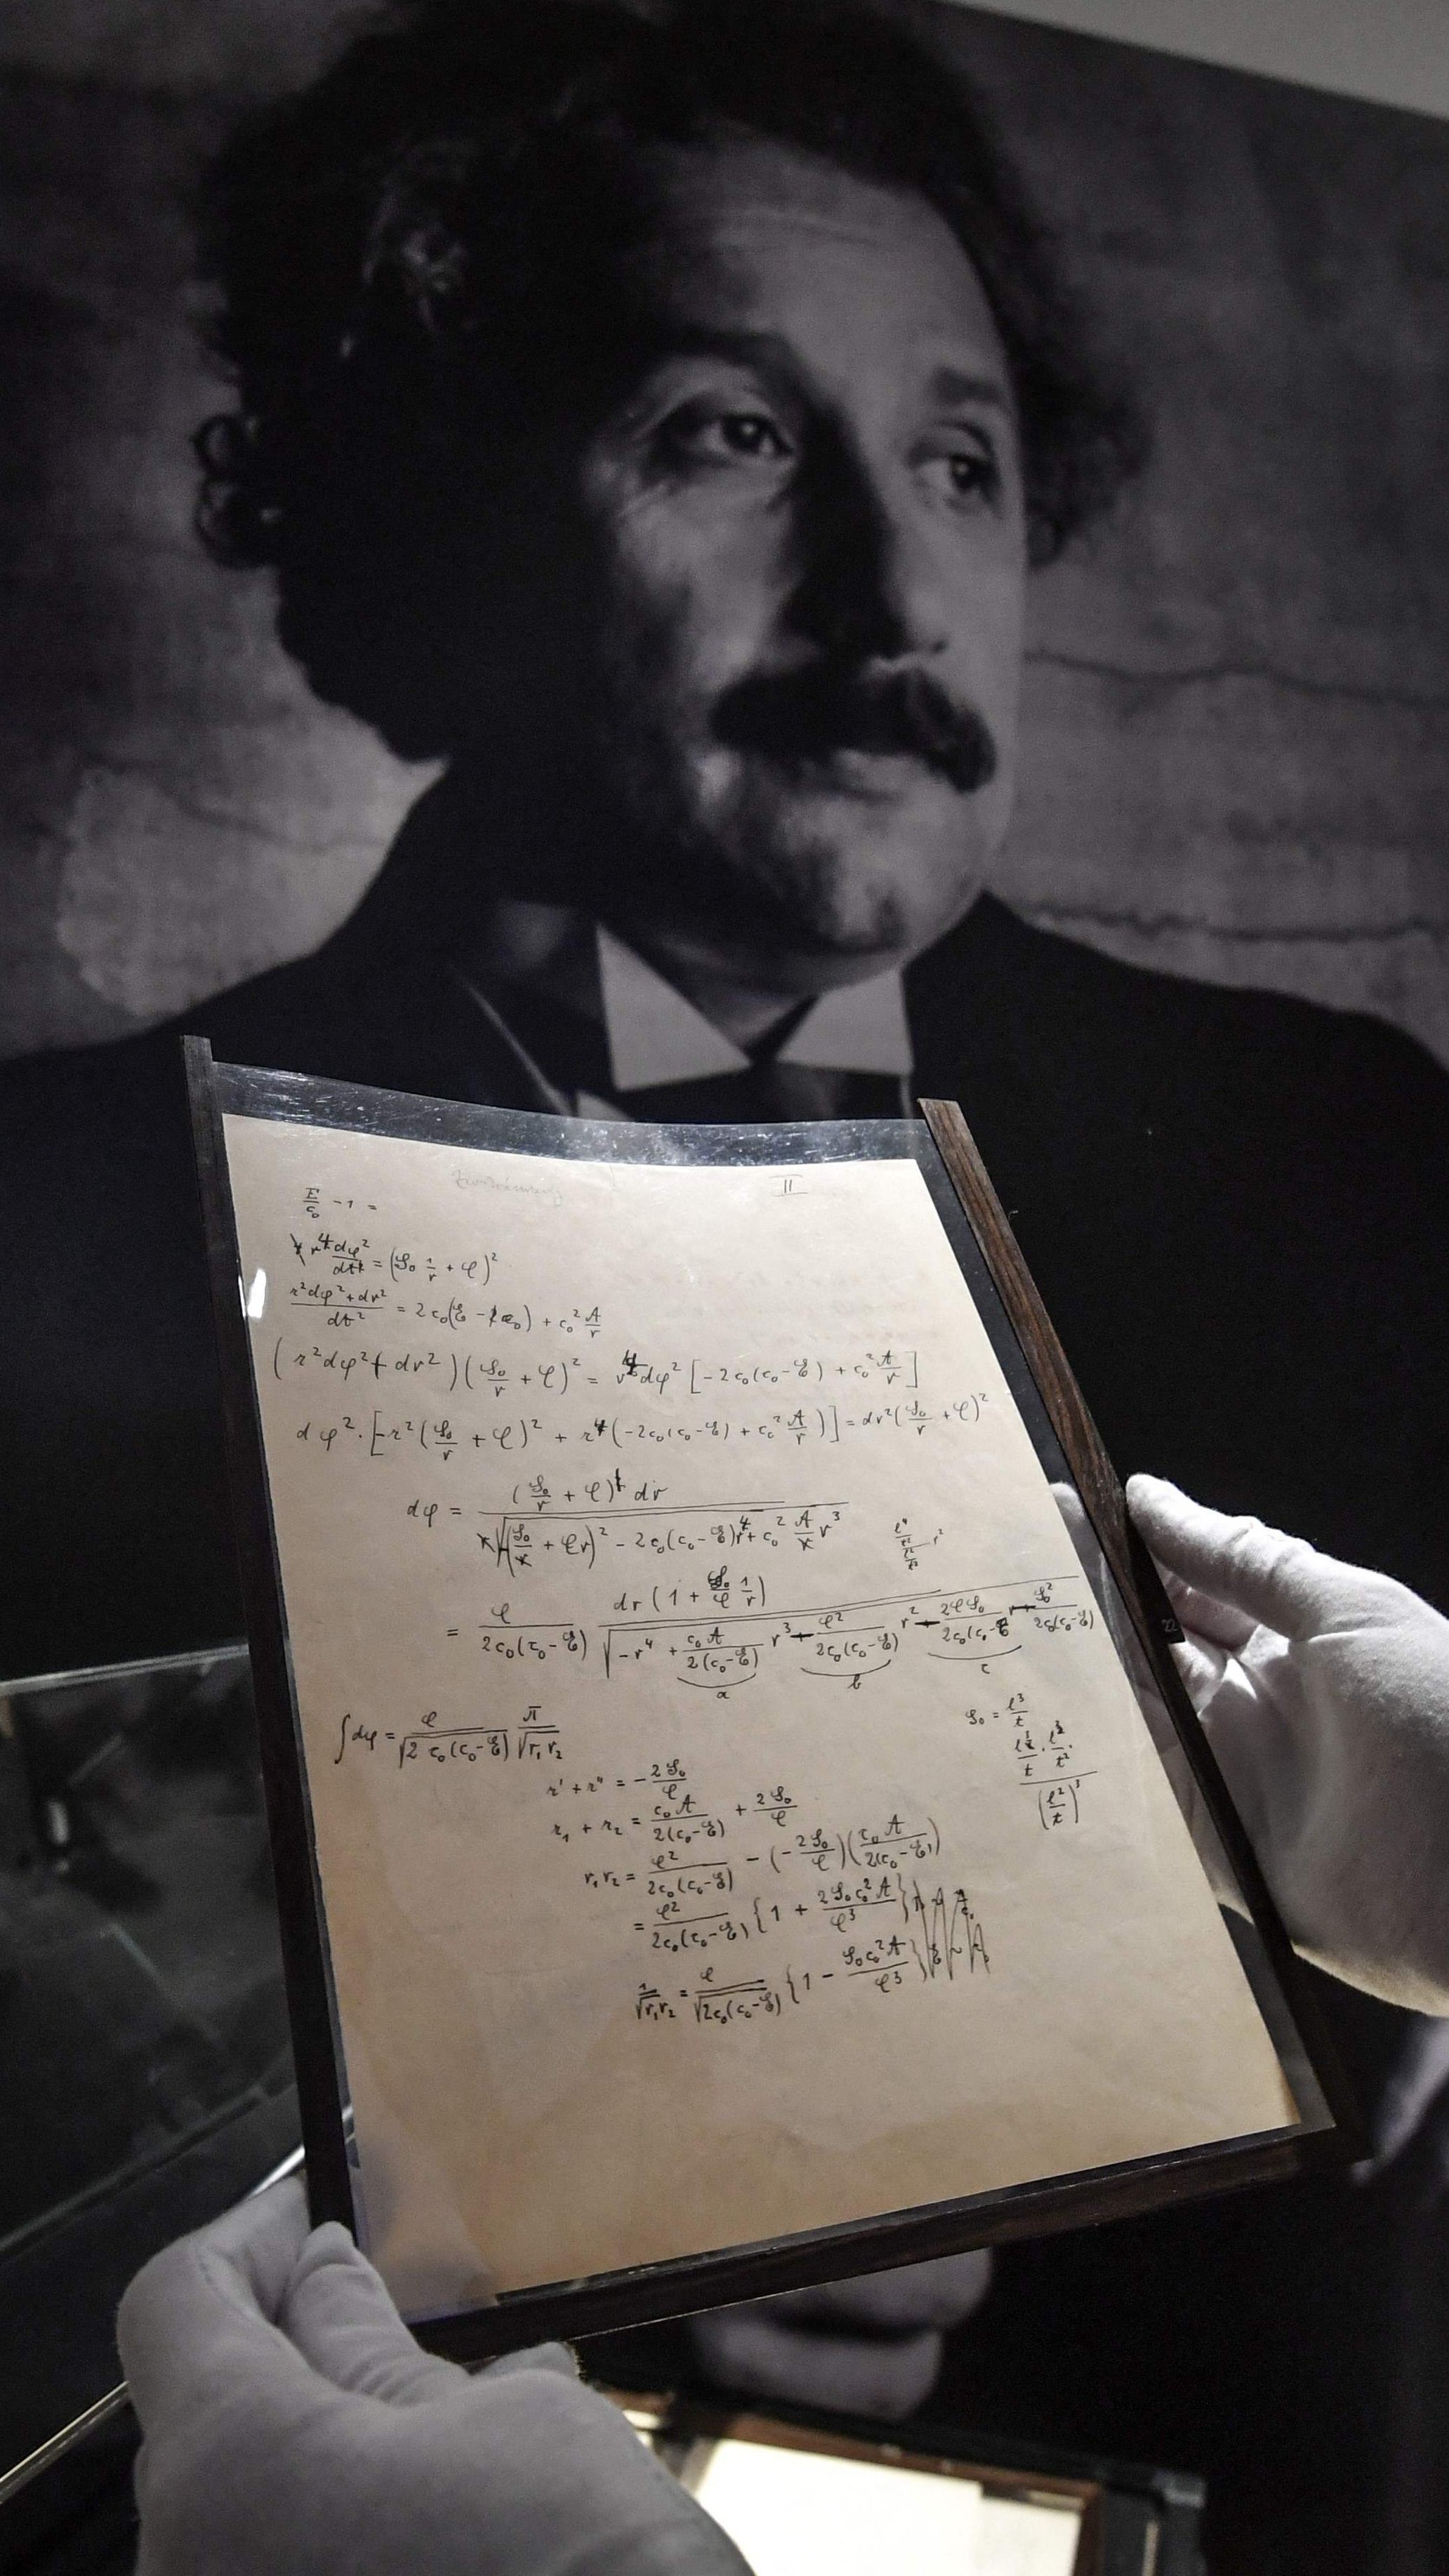 II
E/c₀ - 1 =
r⁴ dφ²/dt² = (S₀ 1/r + φ)²
(r²dφ² + dr²)/dt² = 2c₀(ℰ - c₀) + c₀² A/r
(r²dφ² + dr²)(S₀/r + φ)² = r⁴dφ² [-2c₀(c₀-ℰ) + c₀² A/r]
dφ² · [-r²(S₀/r + φ)² + r⁴(-2c₀(c₀-ℰ) + c₀² A/r)] = dr²(S₀/r + φ)²
dφ = (S₀/r + φ) dr / √(-(S₀ + φr)² - 2c₀(c₀-ℰ)r⁴ + c₀² A r³)
= φ/(2c₀(c₀-ℰ)) dr(1 + S₀/φ 1/r) / √(-r⁴ + c₀A/(2(c₀-ℰ)) r³ - φ²/(2c₀(c₀-ℰ)) r² - 2φS₀/(2c₀(c₀-ℰ)) r - S₀²/(2c₀(c₀-ℰ)))
a b c
∫dφ = φ/√(2c₀(c₀-ℰ)) π/√(r₁r₂)
S₀ = l³/t
r' + r" = - 2S₀/φ
r₁ + r₂ = c₀A/(2(c₀-ℰ)) + 2S₀/φ
r₁r₂ = φ²/(2c₀(c₀-ℰ)) - (-2S₀/φ)(c₀A/(2(c₀-ℰ)))
= φ²/(2c₀(c₀-ℰ)) {1 + 2S₀c₀²A/φ³}
1/√(r₁r₂) = φ/√(2c₀(c₀-ℰ)) {1 - S₀c₀²A/φ³}
22